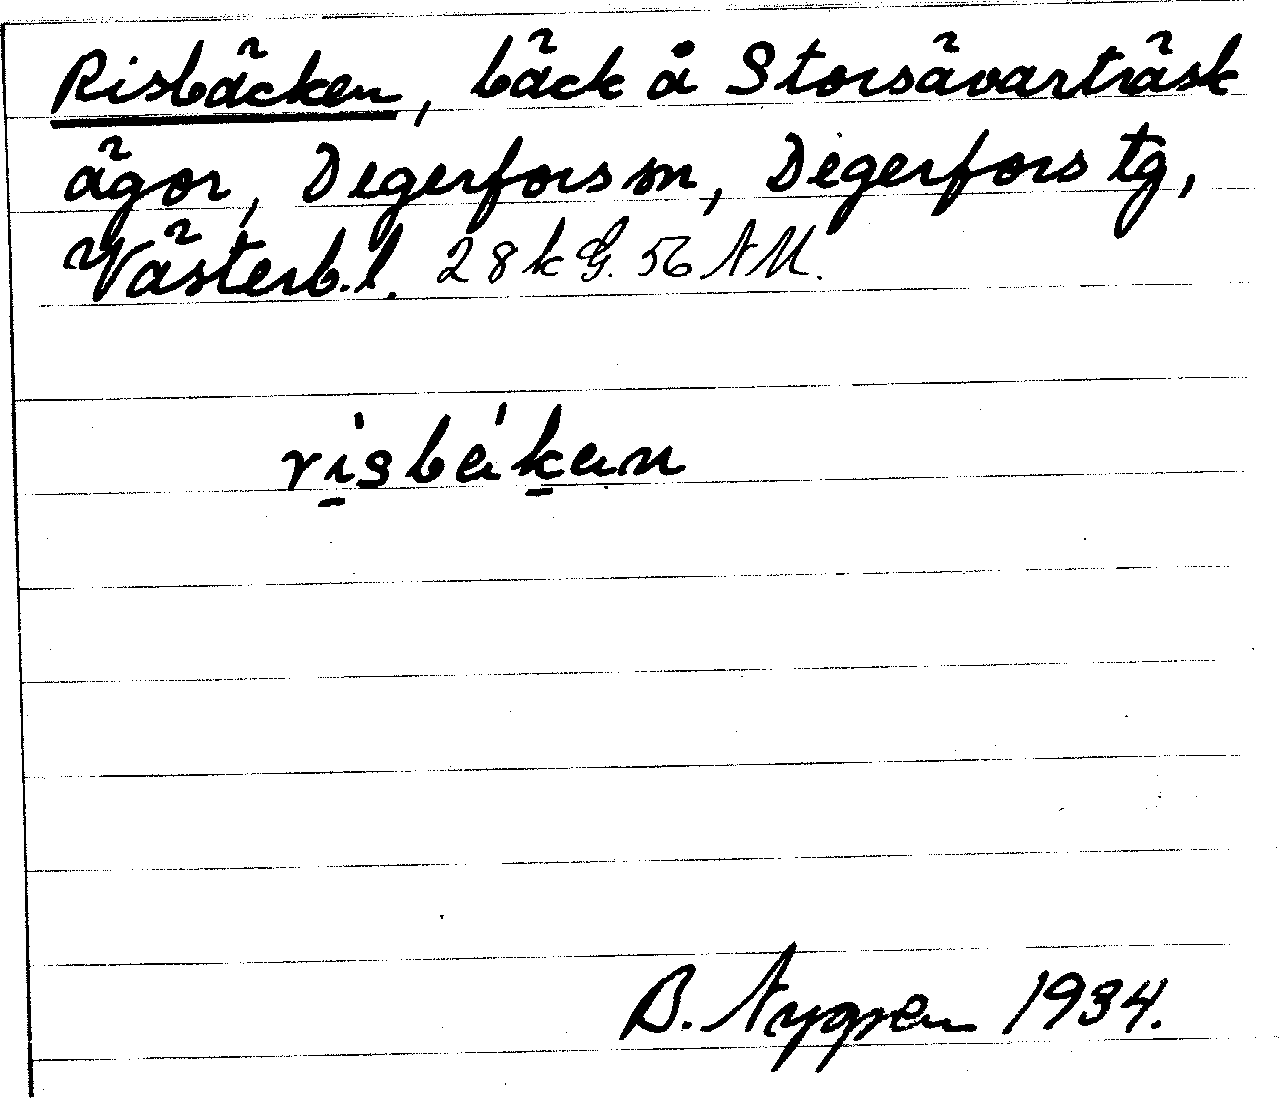 Risbäcken, bäck å Storsävarträsk
ägor, Degerfors sn, Degerfors tg,
Västerb. l. 28 k G. 56 NM.
B. Nygren 1934.